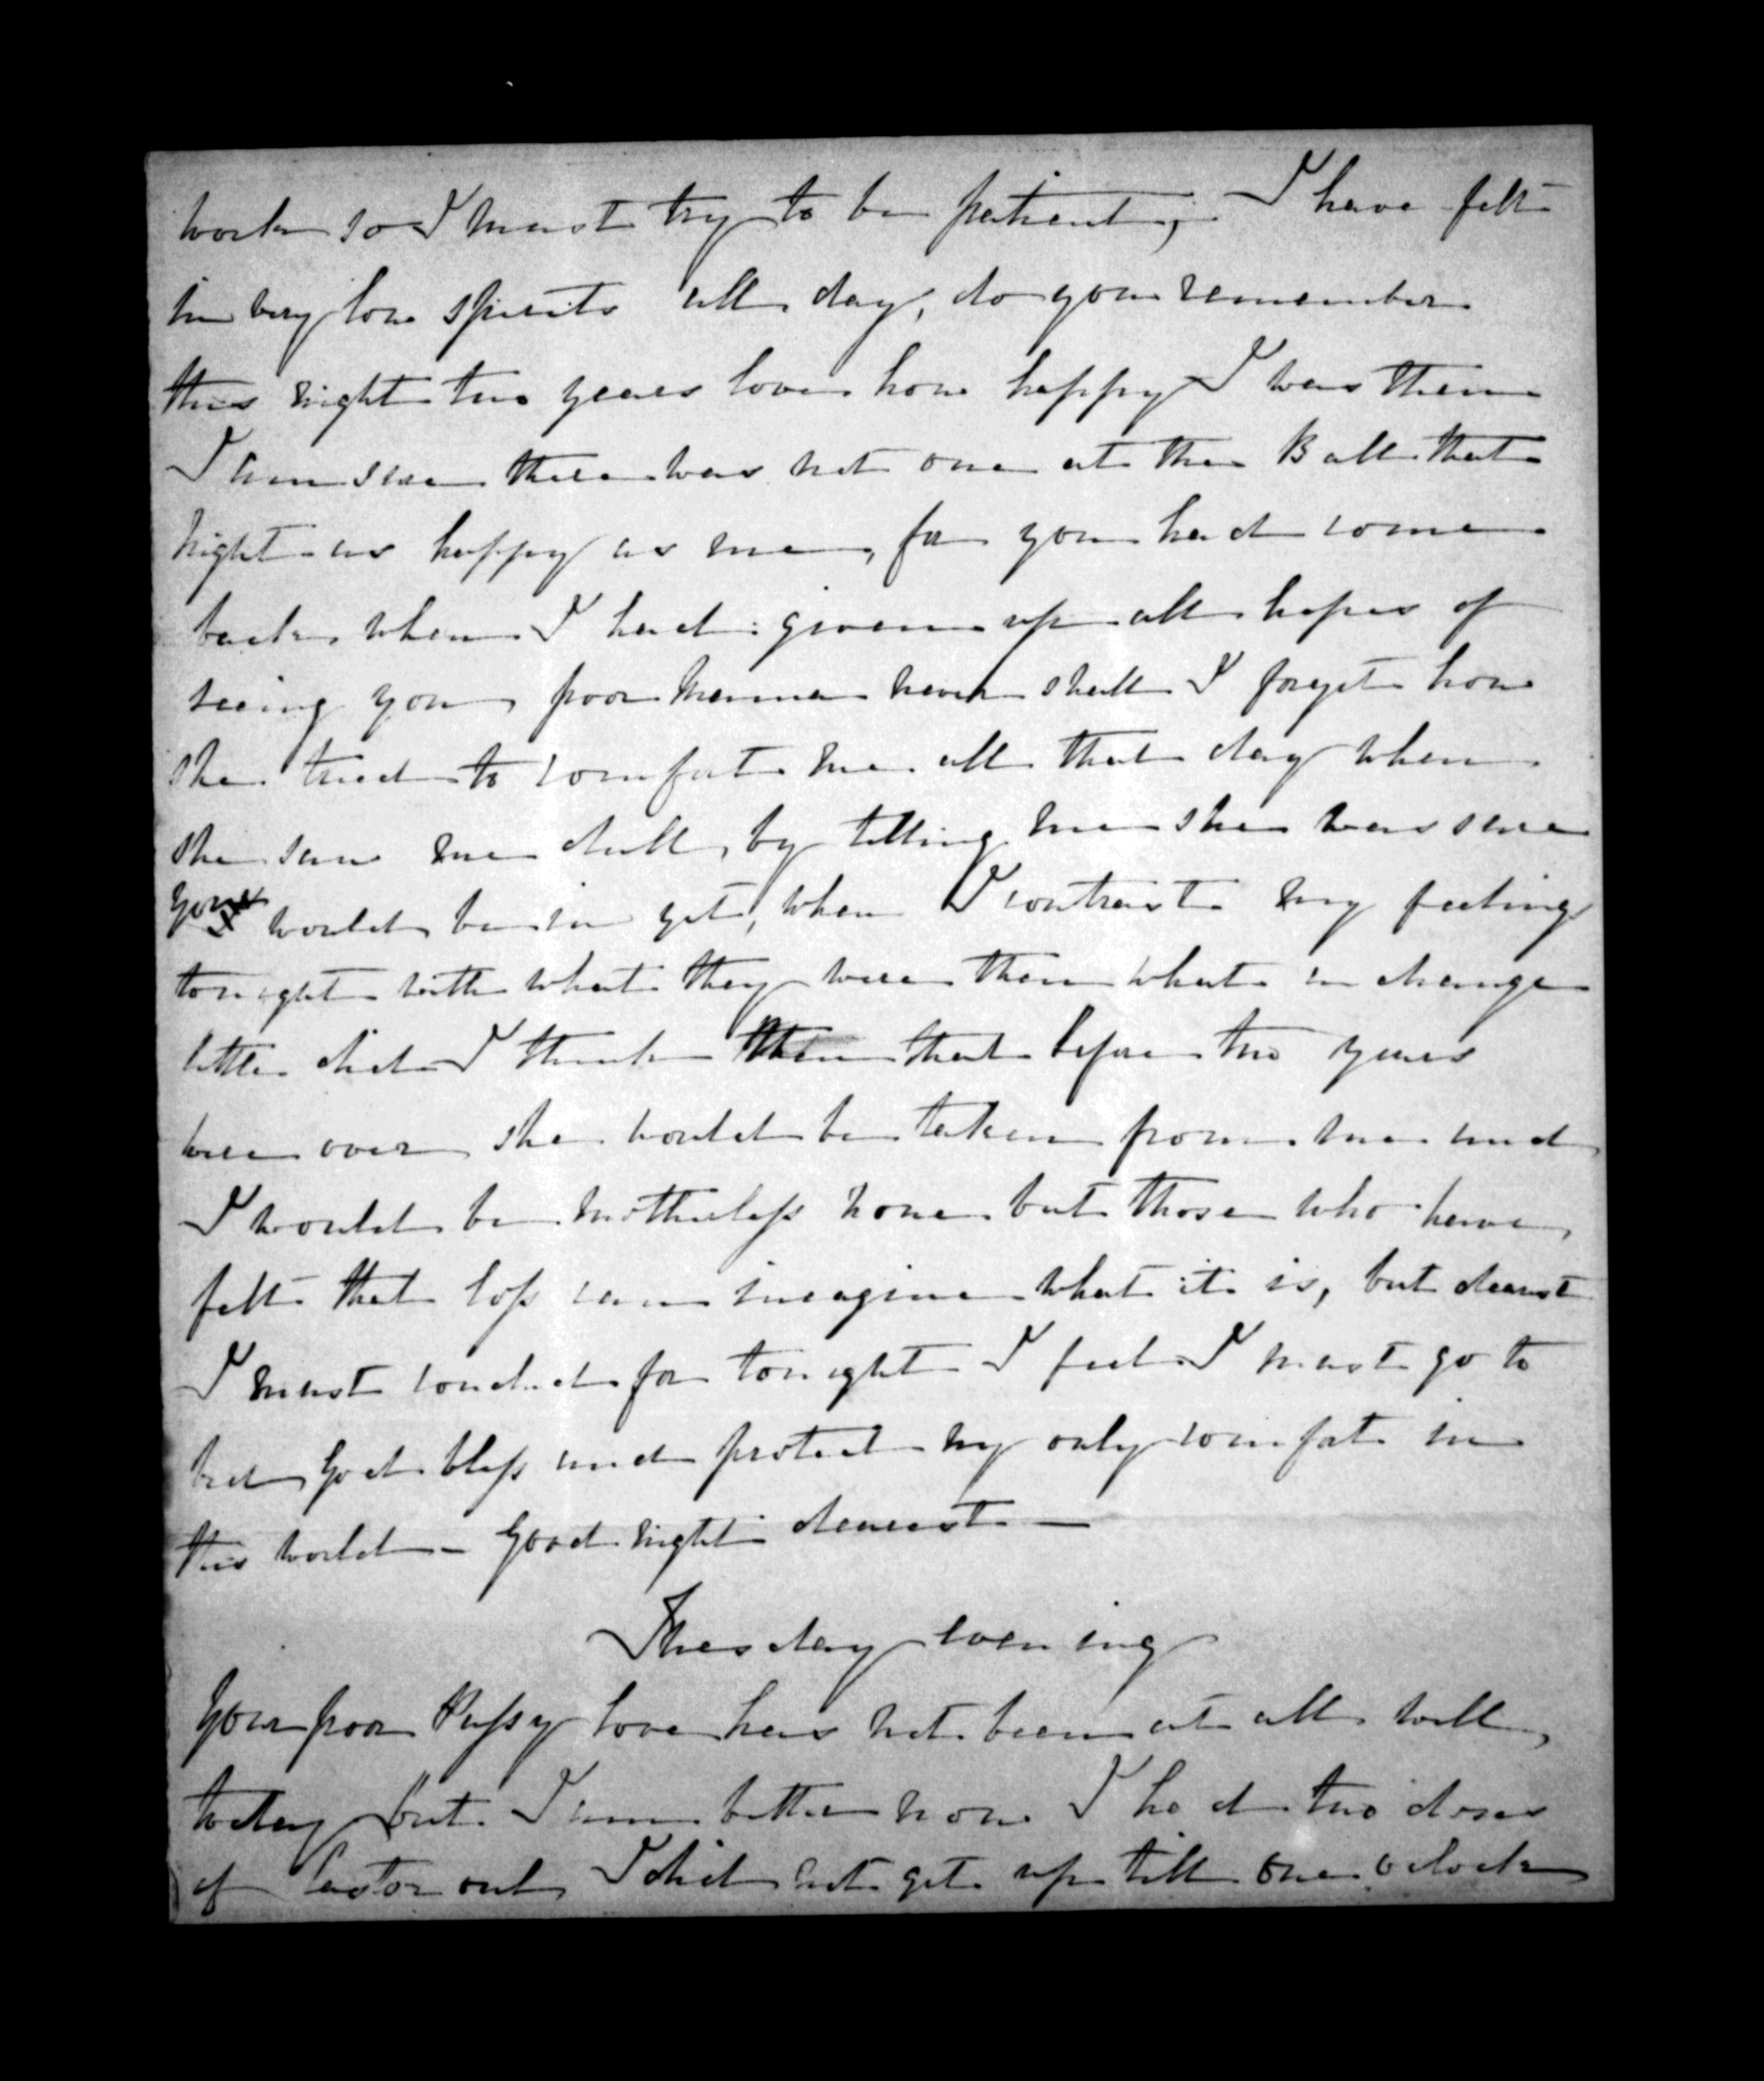 work so I must try to be patient; I have felt
in very low spirits all day, do you remember
this night two years love how happy I was then
I am sure there was not one at the Ball that
night as happy as me, for you had come
back when I had given up all hopes of
seeing you, poor Mama never shall I forget how
she tried to comfort me all that day when
she saw me dull, by telling me she was sure
you would be in yet, when I contrast my feelings
tonight with what they were then what a change
little did I think then that before two years
were over she would be taken from me and
I would be motherless none but those who have
felt that loss can imagine what it is, but dearest
I must conclude for tonight I feel I must go to
bed God bless and protect my only comfort in
this world - Good night dearest —
Tuesday evening
Your poor Pussy love has not been at all well,
today but I am better now I had two doses
of Castor oil, I did not get up till one o clock